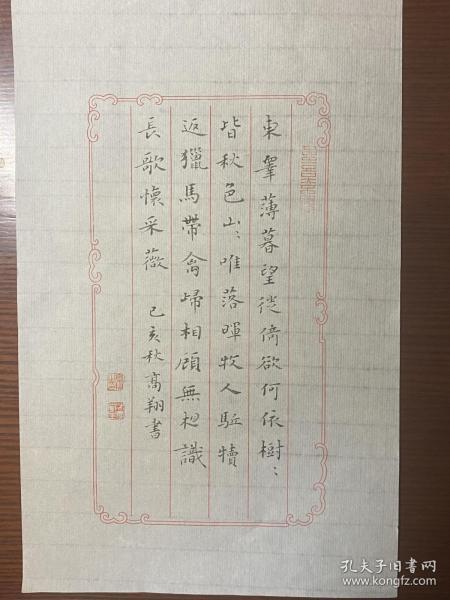 東睪薄暮望徙倚欲何依樹〻
皆秋色山〻唯落暉牧人駈犢
返獵馬帶禽歸相顧無相識
長歌懷采薇 己亥秋高翔書
孔夫子旧书网
www.kongfz.com